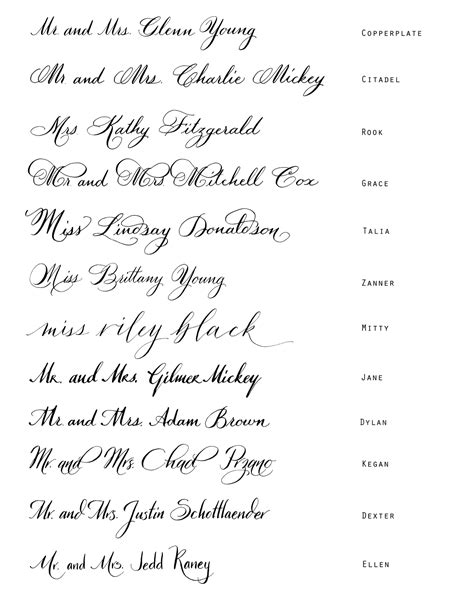 Mr and Mrs. Glenn Young COPPERPLATE
Mr and Mrs. Charlie Mickey CITADEL
Mrs Kathy Fitzgerald ROOK
Mr and Mrs Mitchell Cox GRACE
Miss Lindsay Donaldson TALIA
Miss Brittany Young ZANNER
miss riley black MITTY
Mr. and Mrs. Gilmer Mickey JANE
Mr and Mrs. Adam Brown DYLAN
Mr. and Mrs. Chad Pizano KEGAN
Mr. and Mrs. Justin Schottlaender DEXTER
Mr. and Mrs. Jedd Raney ELLEN